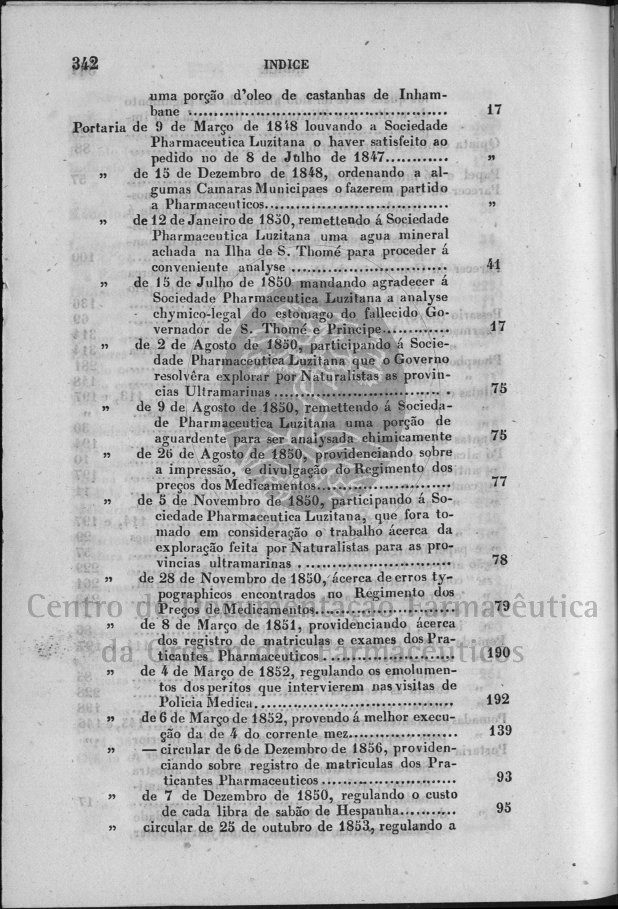 342 INDICE
uma porção d'oleo de castanhas de Inham-
bane ................................................ 17
Portaria de 9 de Março de 1848 louvando a Sociedade
Pharmaceutica Luzitana o haver satisfeito ao
pedido no de 8 de Julho de 1847............ „
„ de 15 de Dezembro de 1848, ordenando a al-
gumas Camaras Municipaes o fazerem partido
a Pharmaceuticos.................................. „
„ de 12 de Janeiro de 1850, remettendo á Sociedade
Pharmaceutica Luzitana uma agua mineral
achada na Ilha de S. Thomé para proceder á
conveniente analyse ............................ 41
„ de 15 de Julho de 1850 mandando agradecer á
Sociedade Pharmaceutica Luzitana a analyse
chymico-legal do estomago do fallecido Go-
vernador de S. Thomé e Principe............. 17
„ de 2 de Agosto de 1850, participando á Socie-
dade Pharmaceutica Luzitana que o Governo
resolvêra explorar por Naturalistas as provin-
cias Ultramarinas ................................ 75
„ de 9 de Agosto de 1850, remettendo á Socieda-
de Pharmaceutica Luzitana uma porção de
aguardente para ser analysada chimicamente 75
„ de 26 de Agosto de 1850, providenciando sobre
a impressão, e divulgação do Regimento dos
preços dos Medicamentos........................ 77
„ de 5 de Novembro de 1850, participando á So-
ciedade Pharmaceutica Luzitana, que fora to-
mado em consideração o trabalho ácerca da
exploração feita por Naturalistas para as pro-
vincias ultramarinas ............................ 78
„ de 28 de Novembro de 1850, ácerca de erros ty-
pographicos encontrados no Regimento dos
Preços de Medicamentos......................... 79
Centro de Documentação Farmacêutica
„ de 8 de Março de 1851, providenciando ácerca
dos registro de matriculas e exames dos Pra-
ticantes Pharmaceuticos ........................ 190
da Ordem dos Farmacêuticos
„ de 4 de Março de 1852, regulando os emolumen-
tos dos peritos que intervierem nas visitas de
Policia Medica.................................... 192
„ de 6 de Março de 1852, provendo á melhor execu-
ção da de 4 do corrente mez.................... 139
„ — circular de 6 de Dezembro de 1856, providen-
ciando sobre registro de matriculas dos Pra-
ticantes Pharmaceuticos ........................ 93
„ de 7 de Dezembro de 1850, regulando o custo
de cada libra de sabão de Hespanha........... 95
„ circular de 25 de outubro de 1853, regulando a